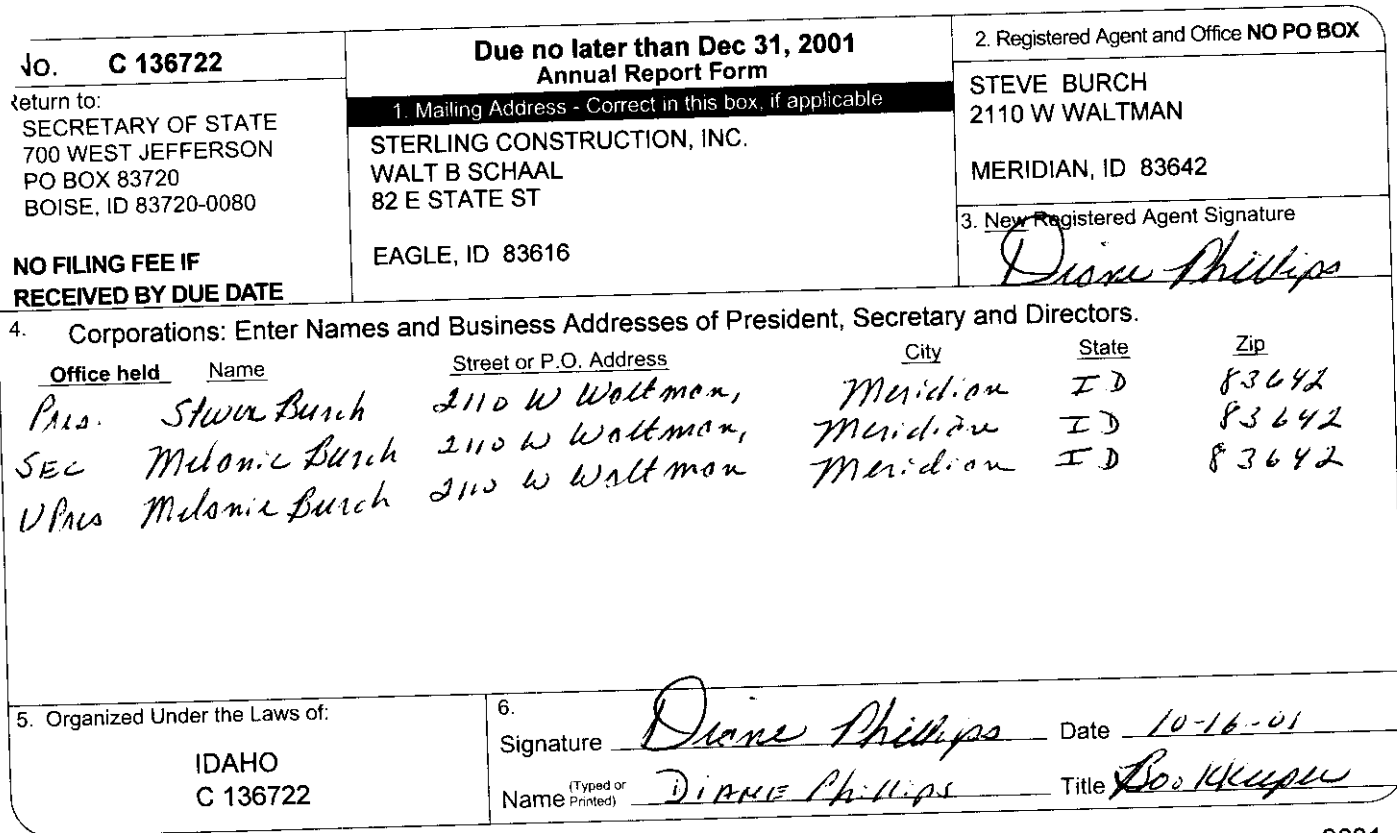 No. C 136722
Return to:
SECRETARY OF STATE
700 WEST JEFFERSON
PO BOX 83720
BOISE, ID 83720-0080
NO FILING FEE IF
RECEIVED BY DUE DATE
Due no later than Dec 31, 2001
Annual Report Form
1. Mailing Address - Correct in this box, if applicable
STERLING CONSTRUCTION, INC.
WALT B SCHAAL
82 E STATE ST
EAGLE, ID 83616
2. Registered Agent and Office NO PO BOX
STEVE BURCH
2110 W WALTMAN
MERIDIAN, ID 83642
3. New Registered Agent Signature
Diane Phillips
4. Corporations: Enter Names and Business Addresses of President, Secretary and Directors.
Office held Name Street or P.O. Address City State Zip
Pres. Steven Burch 2110 W Waltman, Meridian ID 83642
SEC Melanie Burch 2110 W Waltman, Meridian ID 83642
VPres Melanie Burch 2110 W Waltman Meridian ID 83642
5. Organized Under the Laws of:
IDAHO
C 136722
6.
Signature Diane Phillips Date 10-16-01
Name (Typed or Printed) DIANE Phillips Title Bookkeeper